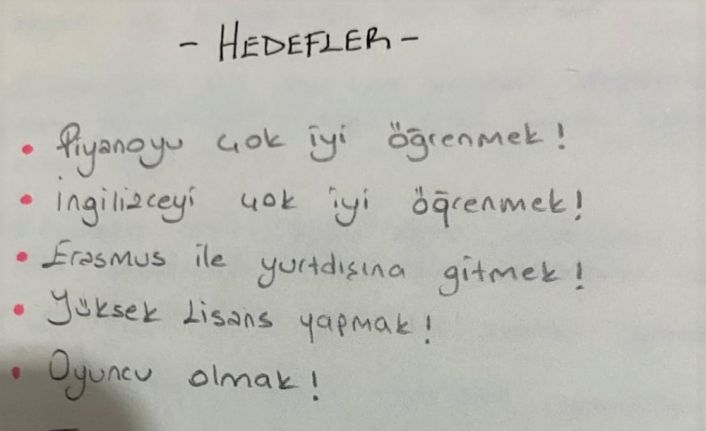 - HEDEFLER -
• Piyanoyu çok iyi öğrenmek!
• İngilizceyi çok iyi öğrenmek!
• Erasmus ile yurtdışına gitmek!
• Yüksek Lisans yapmak!
• Oyuncu olmak!